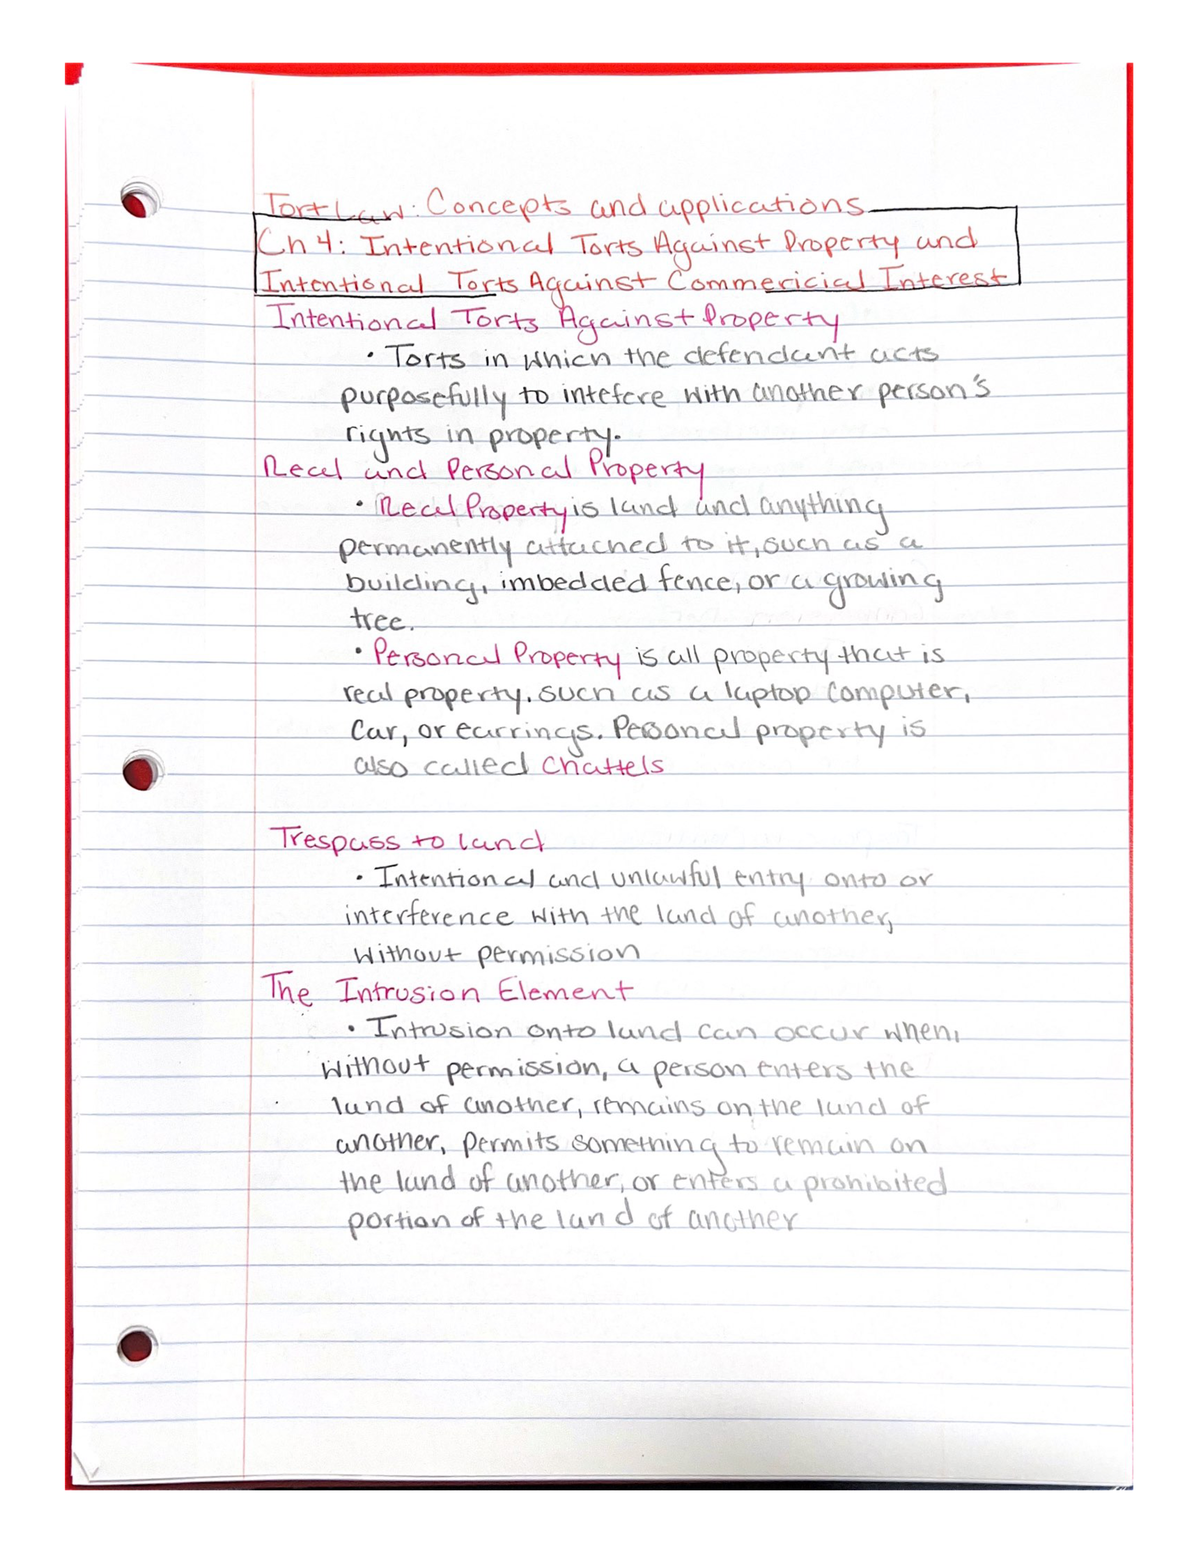 Tort Law: Concepts and applications
Ch 4: Intentional Torts Against Property and
Intentional Torts Against Commericial Interest
Intentional Torts Against Property
• Torts in which the defendant acts
purposefully to intefere with another person's
rights in property.
Real and Personal Property
• Real Property is land and anything
permanently attached to it, such as a
building, imbedded fence, or a growing
tree.
• Personal Property is all property that is
real property, such as a laptop computer,
Car, or earrings. Personal property is
also called Chattels
Trespass to land
• Intentional and unlawful entry onto or
interference with the land of another,
without permission
The Intrusion Element
• Intrusion onto land can occur when,
without permission, a person enters the
land of another, remains on the land of
another, permits something to remain on
the land of another, or enters a prohibited
portion of the land of another